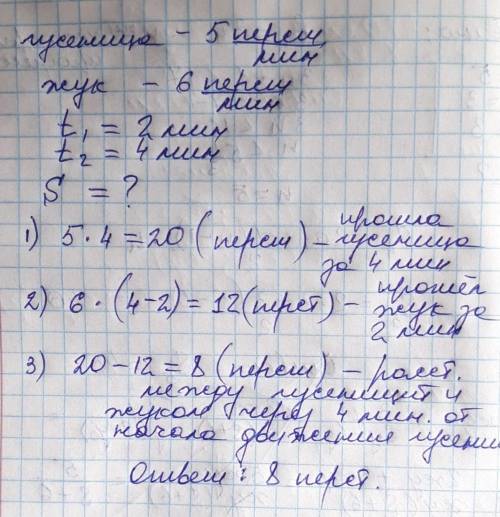 гусеница - 5 перст
мин
жук - 6 перст
мин
t₁ = 2 мин
t₂ = 4 мин
S = ?
1) 5·4=20 (перст) - прошла
гусеница
за 4 мин
2) 6·(4-2)=12(перст) - прошёл
жук за
2 мин
3) 20-12=8 (перст) - расст.
между гусеницей и
жуком через 4 мин. от
начала движения гусени
Ответ: 8 перст.